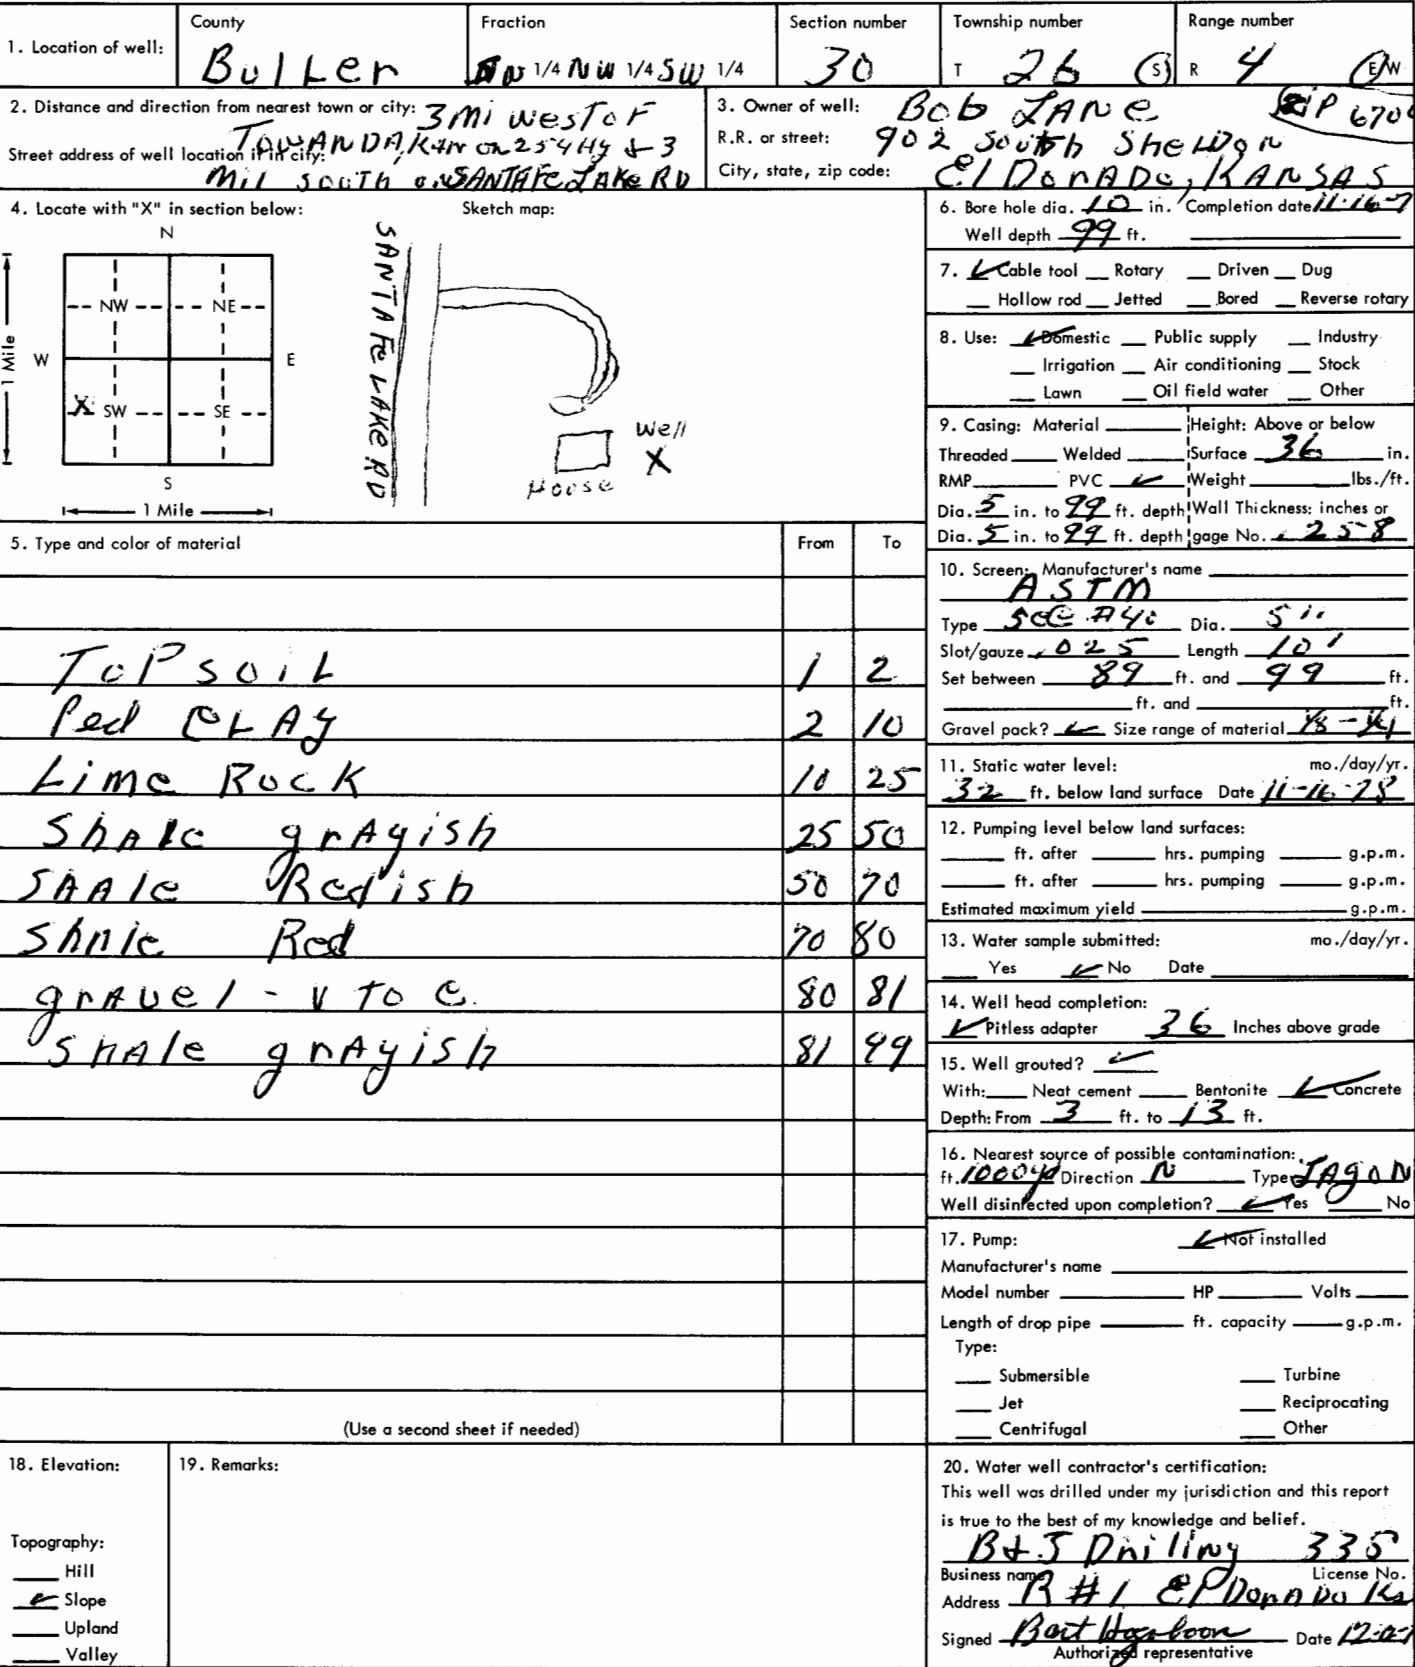 1. Location of well: County Butler Fraction 1/4 NW 1/4 SW 1/4 Section number 30 Township number T 26 S Range number R 4 E/W
2. Distance and direction from nearest town or city: 3 mi west of
TOWANDA, KAN on 254 Hy & 3
Street address of well location if in city:
mil south on SANTA FE LAKE RD
3. Owner of well: Bob LANE ZIP 670
R.R. or street: 902 South Sheldon
City, state, zip code: El DorADo, KANSAS
4. Locate with "X" in section below:
N
NW NE
W E
X SW SE
S
1 Mile
1 Mile
Sketch map:
SANTA FE LAKE RD
Well
X
House
5. Type and color of material From To
TOP SOIL 1 2
Red CLAY 2 10
Lime Rock 10 25
ShAle grAyish 25 50
ShAle Redish 50 70
ShAle Red 70 80
grAvel - V TO C. 80 81
ShAle grAyish 81 99
(Use a second sheet if needed)
6. Bore hole dia. 10 in. Completion date 11-16-7
Well depth 99 ft.
7. ✓ Cable tool __ Rotary __ Driven __ Dug
__ Hollow rod __ Jetted __ Bored __ Reverse rotary
8. Use: ✓ Domestic __ Public supply __ Industry
__ Irrigation __ Air conditioning __ Stock
__ Lawn __ Oil field water __ Other
9. Casing: Material ____ Height: Above or below
Threaded ____ Welded ____ Surface 36 in.
RMP ____ PVC ✓ Weight ____ lbs./ft.
Dia. 5 in. to 99 ft. depth Wall Thickness: inches or
Dia. 5 in. to 99 ft. depth gage No. .258
10. Screen: Manufacturer's name
ASTM
Type Dia. 5"
Slot/gauze .025 Length 10'
Set between 89 ft. and 99 ft.
____ ft. and ____ ft.
Gravel pack? ✓ Size range of material 1/8 -
11. Static water level: mo./day/yr.
32 ft. below land surface Date 11-16-78
12. Pumping level below land surfaces:
____ ft. after ____ hrs. pumping ____ g.p.m.
____ ft. after ____ hrs. pumping ____ g.p.m.
Estimated maximum yield ____ g.p.m.
13. Water sample submitted: mo./day/yr.
__ Yes ✓ No Date ____
14. Well head completion:
✓ Pitless adapter 36 Inches above grade
15. Well grouted? ✓
With: __ Neat cement __ Bentonite ✓ Concrete
Depth: From 3 ft. to 13 ft.
16. Nearest source of possible contamination:
ft. 1000yd Direction N Type LAgoN
Well disinfected upon completion? ✓ Yes __ No
17. Pump: ✓ Not installed
Manufacturer's name ____
Model number ____ HP ____ Volts ____
Length of drop pipe ____ ft. capacity ____ g.p.m.
Type:
__ Submersible __ Turbine
__ Jet __ Reciprocating
__ Centrifugal __ Other
18. Elevation:
Topography:
__ Hill
✓ Slope
__ Upland
__ Valley
19. Remarks:
20. Water well contractor's certification:
This well was drilled under my jurisdiction and this report
is true to the best of my knowledge and belief.
B & J Drilling 335
Business name License No.
Address R #1 El DorADo Ks
Signed Bart Date
Authorized representative